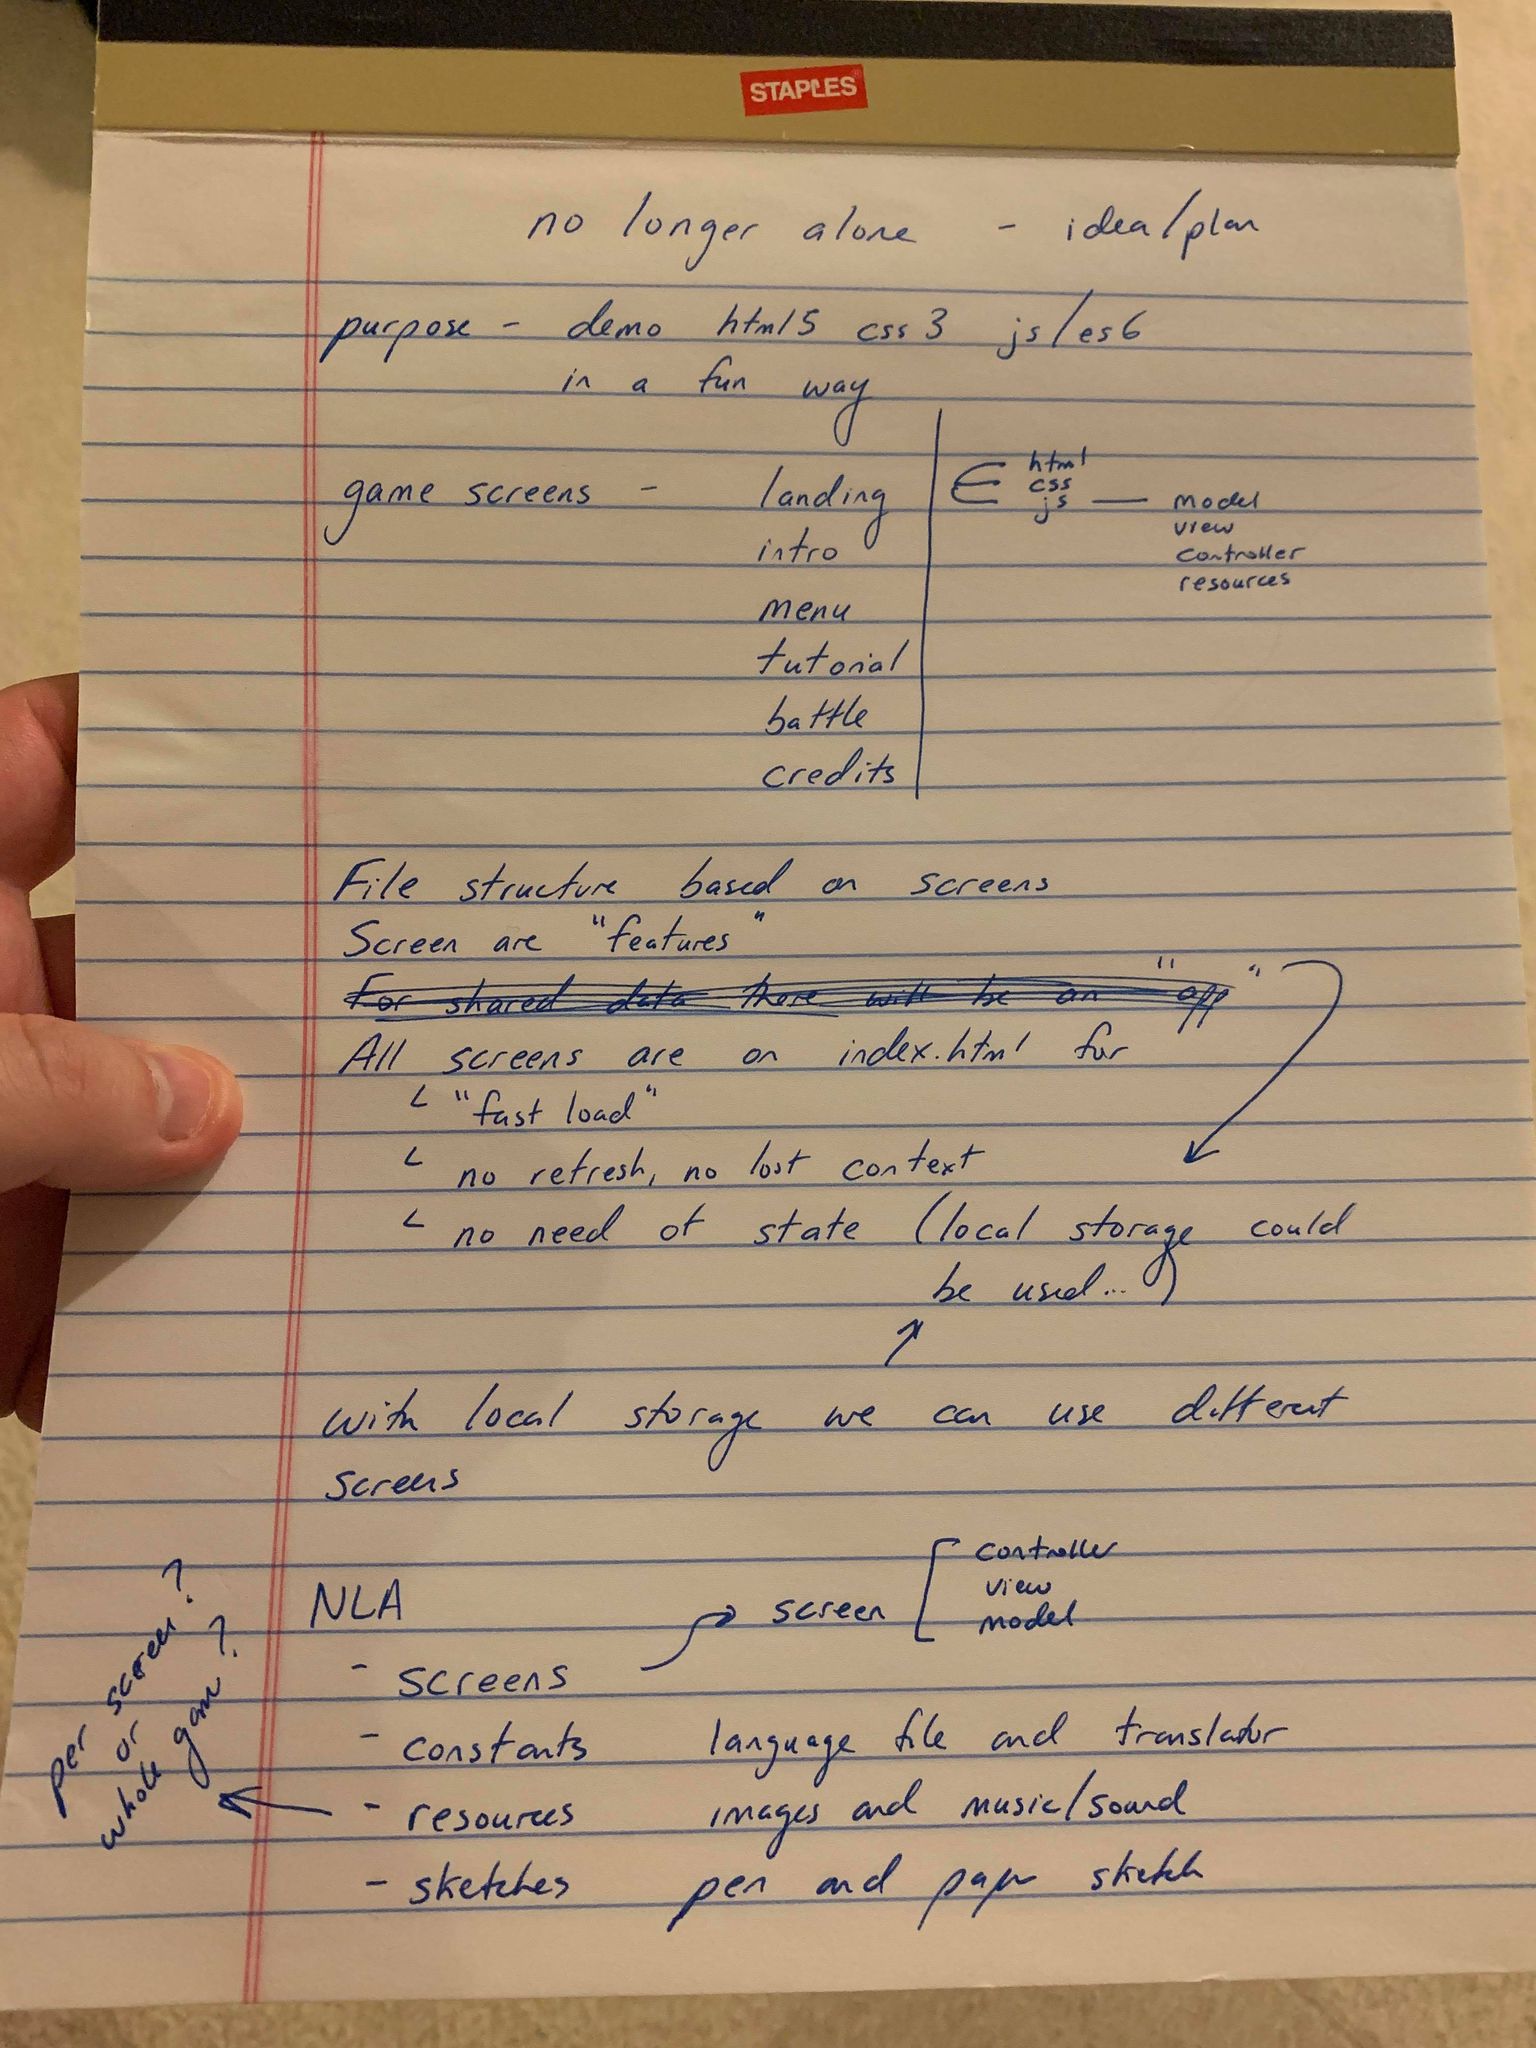 STAPLES
no longer alone - idea/plan
purpose - demo html5 css3 js/es6
in a fun way
game screens - landing
intro
menu
tutorial
battle
credits
∈ html
css
js — model
view
controller
resources
File structure based on screens
Screen are "features"
For shared data there will be an "app"
All screens are on index.html for
"fast load"
no refresh, no lost context
no need of state (local storage could
be used...)
with local storage we can use different
screens
NLA
- screens → screen [ controller
view
model
- constants language file and translator
- resources images and music/sound
- sketches pen and paper sketch
per screen?
or
whole game?